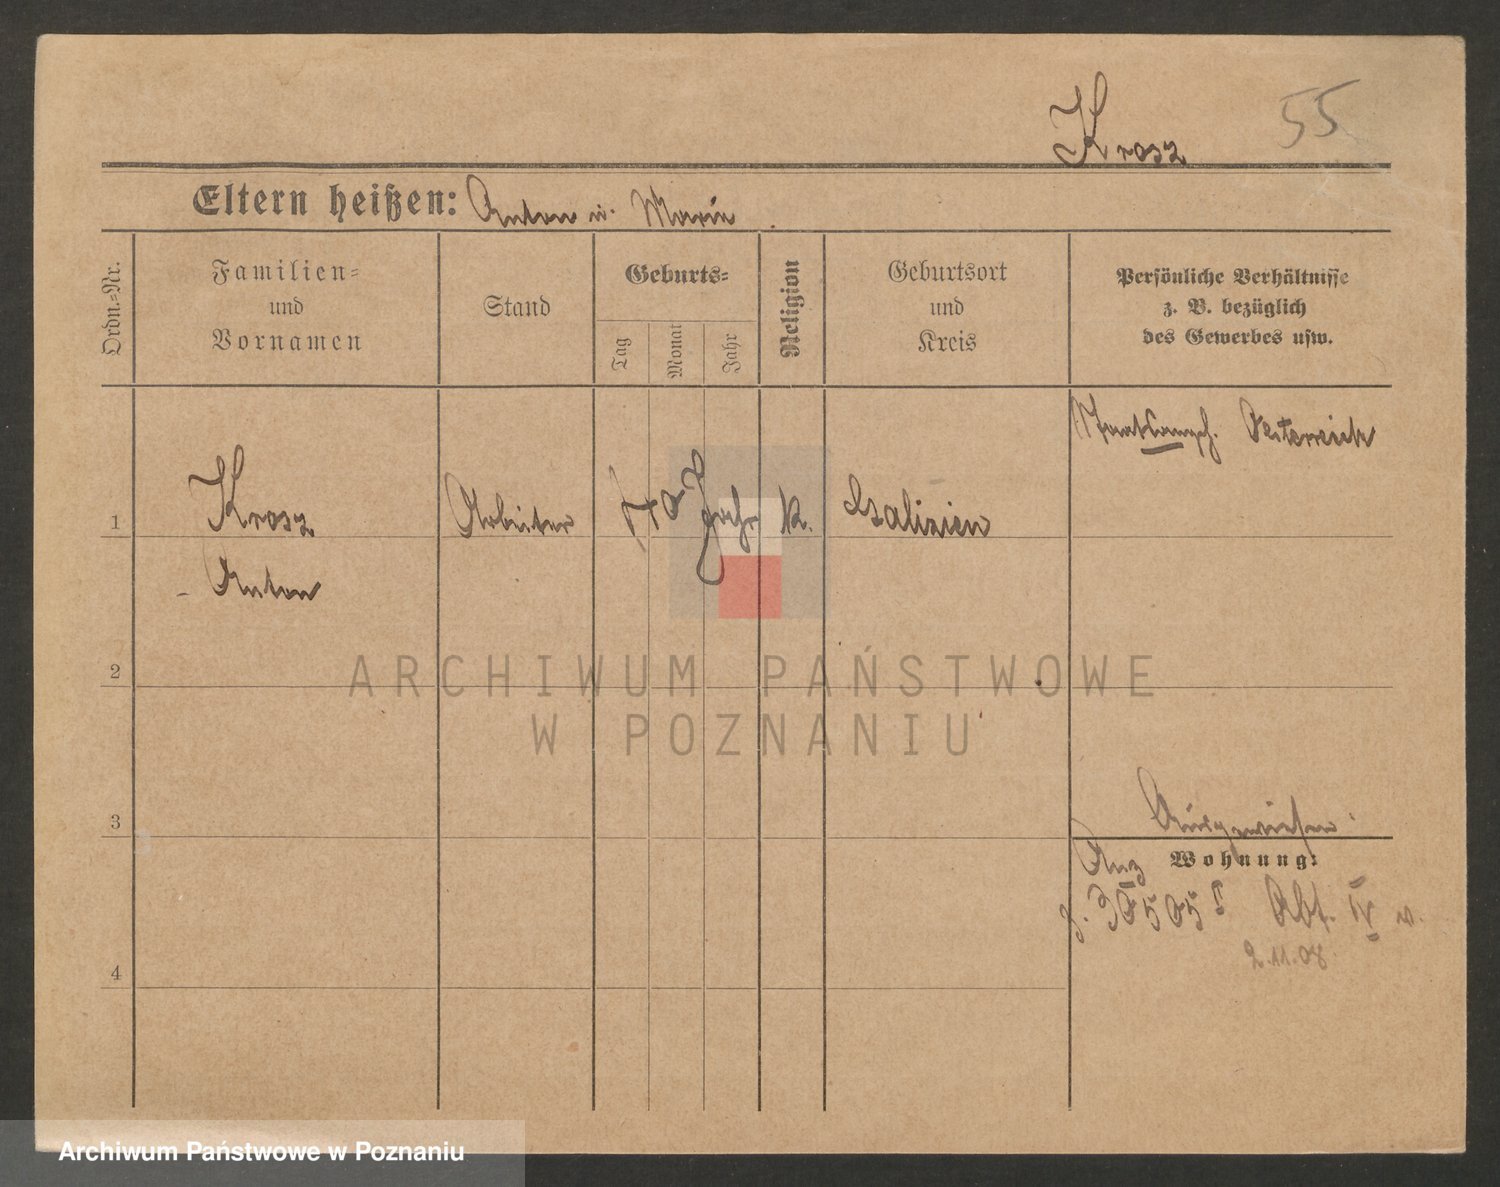 Krosz 55
Eltern heißen: Anton u. Marie
Ordn.=Nr.
Familien=
und
Vornamen
Stand
Geburts=
Tag
Monat
Jahr
Religion
Geburtsort
und
Kreis
Persönliche Verhältnisse
z. B. bezüglich
des Gewerbes usw.
Österreich
1 Krosz Arbeiter Jahr k. Galizien
Anton
2
ARCHIWUM PAŃSTWOWE
W POZNANIU
3 Ausgewiesen
Wohnung:
Abt. IV
2.11.08.
4
Archiwum Państwowe w Poznaniu